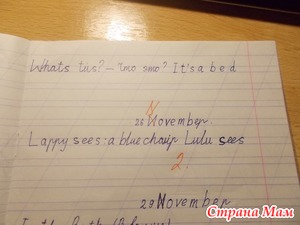 Whats tis? – что это? It's a bed
26 November
Lappy sees: a blue chair Lulu sees
2.
29 November
Страна Мам